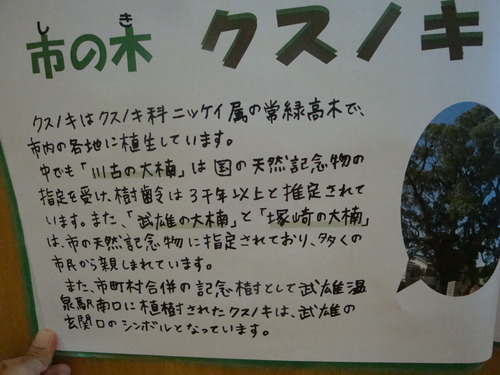 し き
市の木 クスノキ
クスノキはクスノキ科ニッケイ属の常緑高木で、
市内の各地に植生しています。
中でも「川古の大楠」は国の天然記念物の
指定を受け、樹齢は3千年以上と推定されて
います。また、「武雄の大楠」と「塚崎の大楠」
は、市の天然記念物に指定されており、多くの
市民から親しまれています。
また、市町村合併の記念樹として武雄温
泉駅南口に植樹されたクスノキは、武雄の
玄関口のシンボルとなっています。